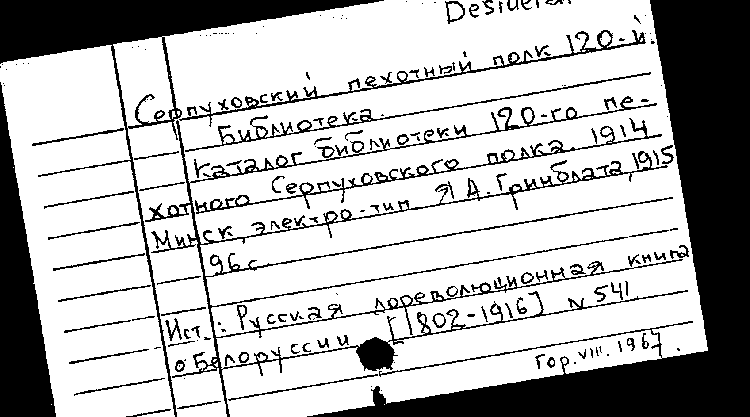 Серпуховский пехотный полк 120-й.
Библиотека.
Каталог библиотеки 120-го пе-
хотного Серпуховского полка. 1914
Минск, электро-тип Я А. Гринблата, 1915
96 с
Ист.: Русская дореволюционная книга
о Белоруссии [1802-1916] N 541
Гор. VIII. 1967.